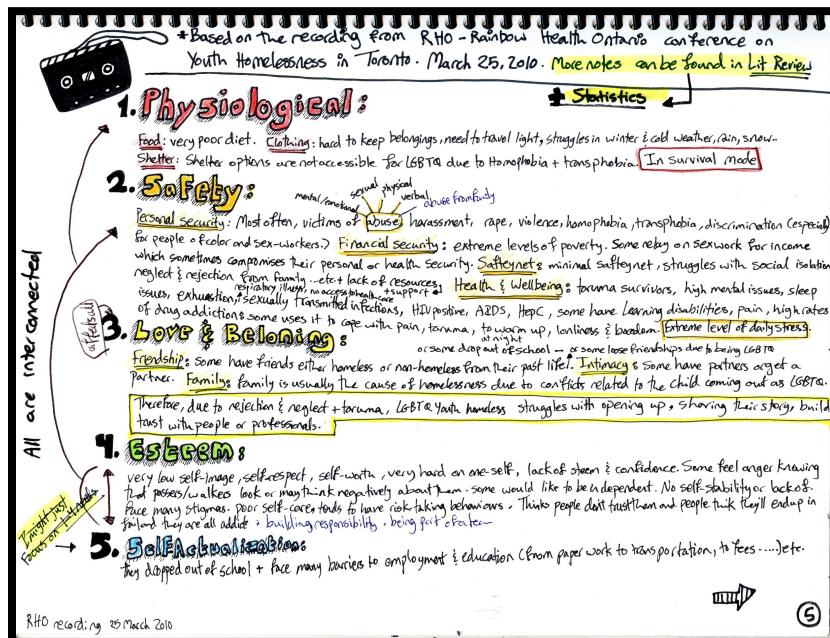 *Based on the recording from RHO - Rainbow Health Ontario conference on
Youth Homelessness in Toronto. March 25, 2010. More notes can be found in Lit Review
* Statistics
1. Physiological:
Food: very poor diet. Clothing: hard to keep belongings, need to travel light, struggles in winter & cold weather, rain, snow-
Shelter: Shelter options are not accessible for LGBTQ due to Homophobia + transphobia. In survival mode
2. Safety:
mental/emotional sexual physical verbal abuse from family
Personal security: Most often, victims of abuse, harassment, rape, violence, homophobia, transphobia, discrimination (especial
for people of color and sex-workers.) Financial security: extreme levels of poverty. Some relay on sexwork for income
which sometimes compromises their personal or health security. Safteynet: minimal safteynet, struggles with social isolation
neglect & rejection from family...etc + lack of resources, + support. Health & Wellbeing: toruma survivors, high mental issues, sleep
respiratory illness, no access to health care
issues, exhuastion, sexually transmitted infections, HIV postive, AIDS, HepC, some have Learning disabilities, pain, high rates
of drug addiction: some uses it to cope with pain, toruma, to warm up, lonliness & boredom. Extreme level of daily stress.
at night
3. Love & Beloning:
or some drop out of school - or some loose friendships due to being LGBTQ
Friendship: some have friends either homeless or non-homeless from their past life. Intimacy: some have partners or get a
Partner. Family: family is usually the cause of homelessness due to conflicts related to the child coming out as LGBTQ.
Therefore, due to rejection & neglect + toruma, LGBTQ Youth homeless struggles with opening up, sharing their story, build
trust with people or professionals.
4. Esteem:
very low self-image, self respect, self-worth, very hard on one-self, lack of steem & confidence. Some feel anger knowing
that passers/walkers look or may think negatively about them. some would like to be independent. No self-stability or lack of.
Face many stigmas. poor self-care, tends to have risk-taking behaviours. Thinks people don't trust them and people think they'll end up in
jail and they are all addicts building responsibility. being part of
5. Self Actualization:
they dropped out of school + face many barriers to employment & education (from paper work to transportation, to fees.....) etc.
All are interconnected
affects all
I might just
focus on 1-4 needs
RHO recording 25 March 2010
5